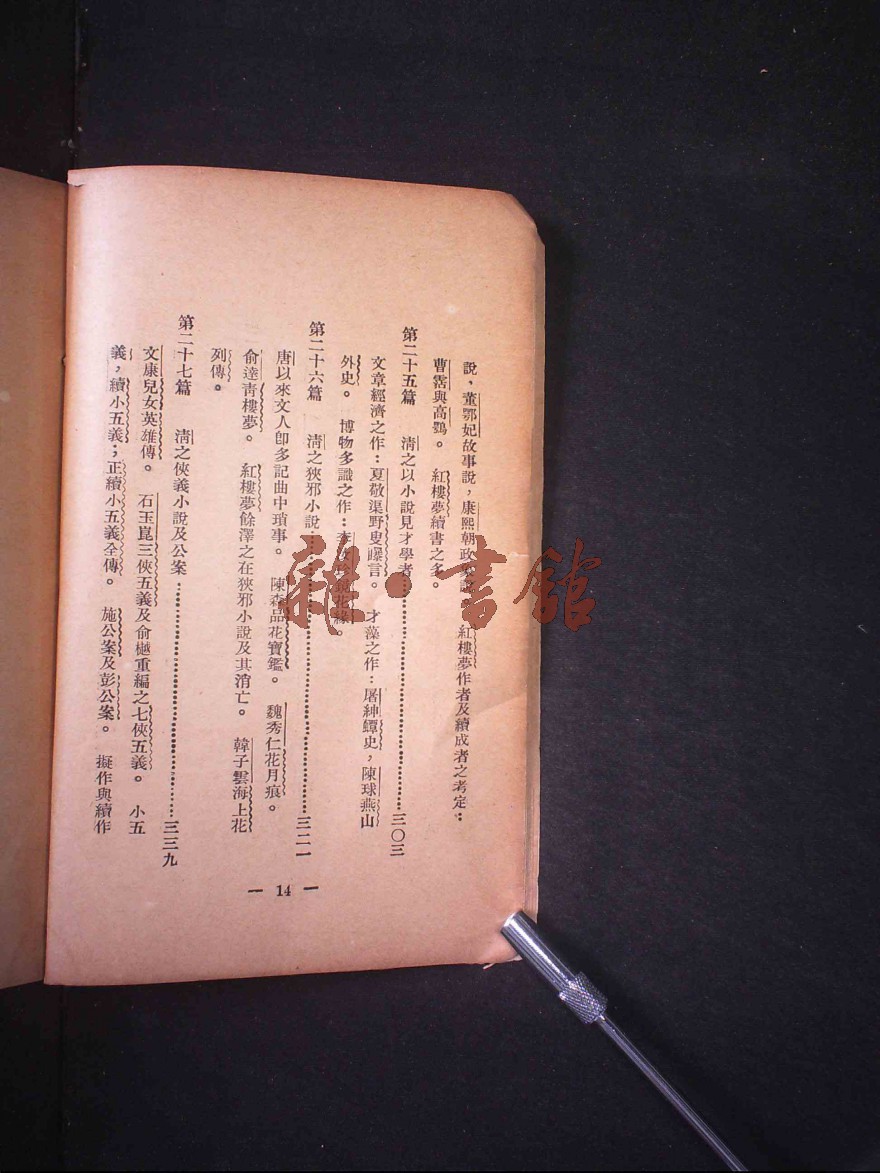 說，董鄂妃故事說，康熙朝政說 紅樓夢作者及續成者之考定：
曹霑與高鶚。 紅樓夢續書之多。
第二十五篇 淸之以小說見才學者……三〇三
文章經濟之作：夏敬渠野叟曝言。 才藻之作：屠紳蟫史，陳球燕山
外史。 博物多識之作：李汝珍鏡花緣。
第二十六篇 淸之狹邪小說……三二一
唐以來文人卽多記曲中瑣事。 陳森品花寶鑑。 魏秀仁花月痕。
俞達靑樓夢。 紅樓夢餘澤之在狹邪小說及其消亡。 韓子雲海上花
列傳。
第二十七篇 淸之俠義小說及公案……三三九
文康兒女英雄傳。 石玉崑三俠五義及俞樾重編之七俠五義。 小五
義，續小五義；正續小五義全傳。 施公案及彭公案。 擬作與續作
— 14 —
雜·書館